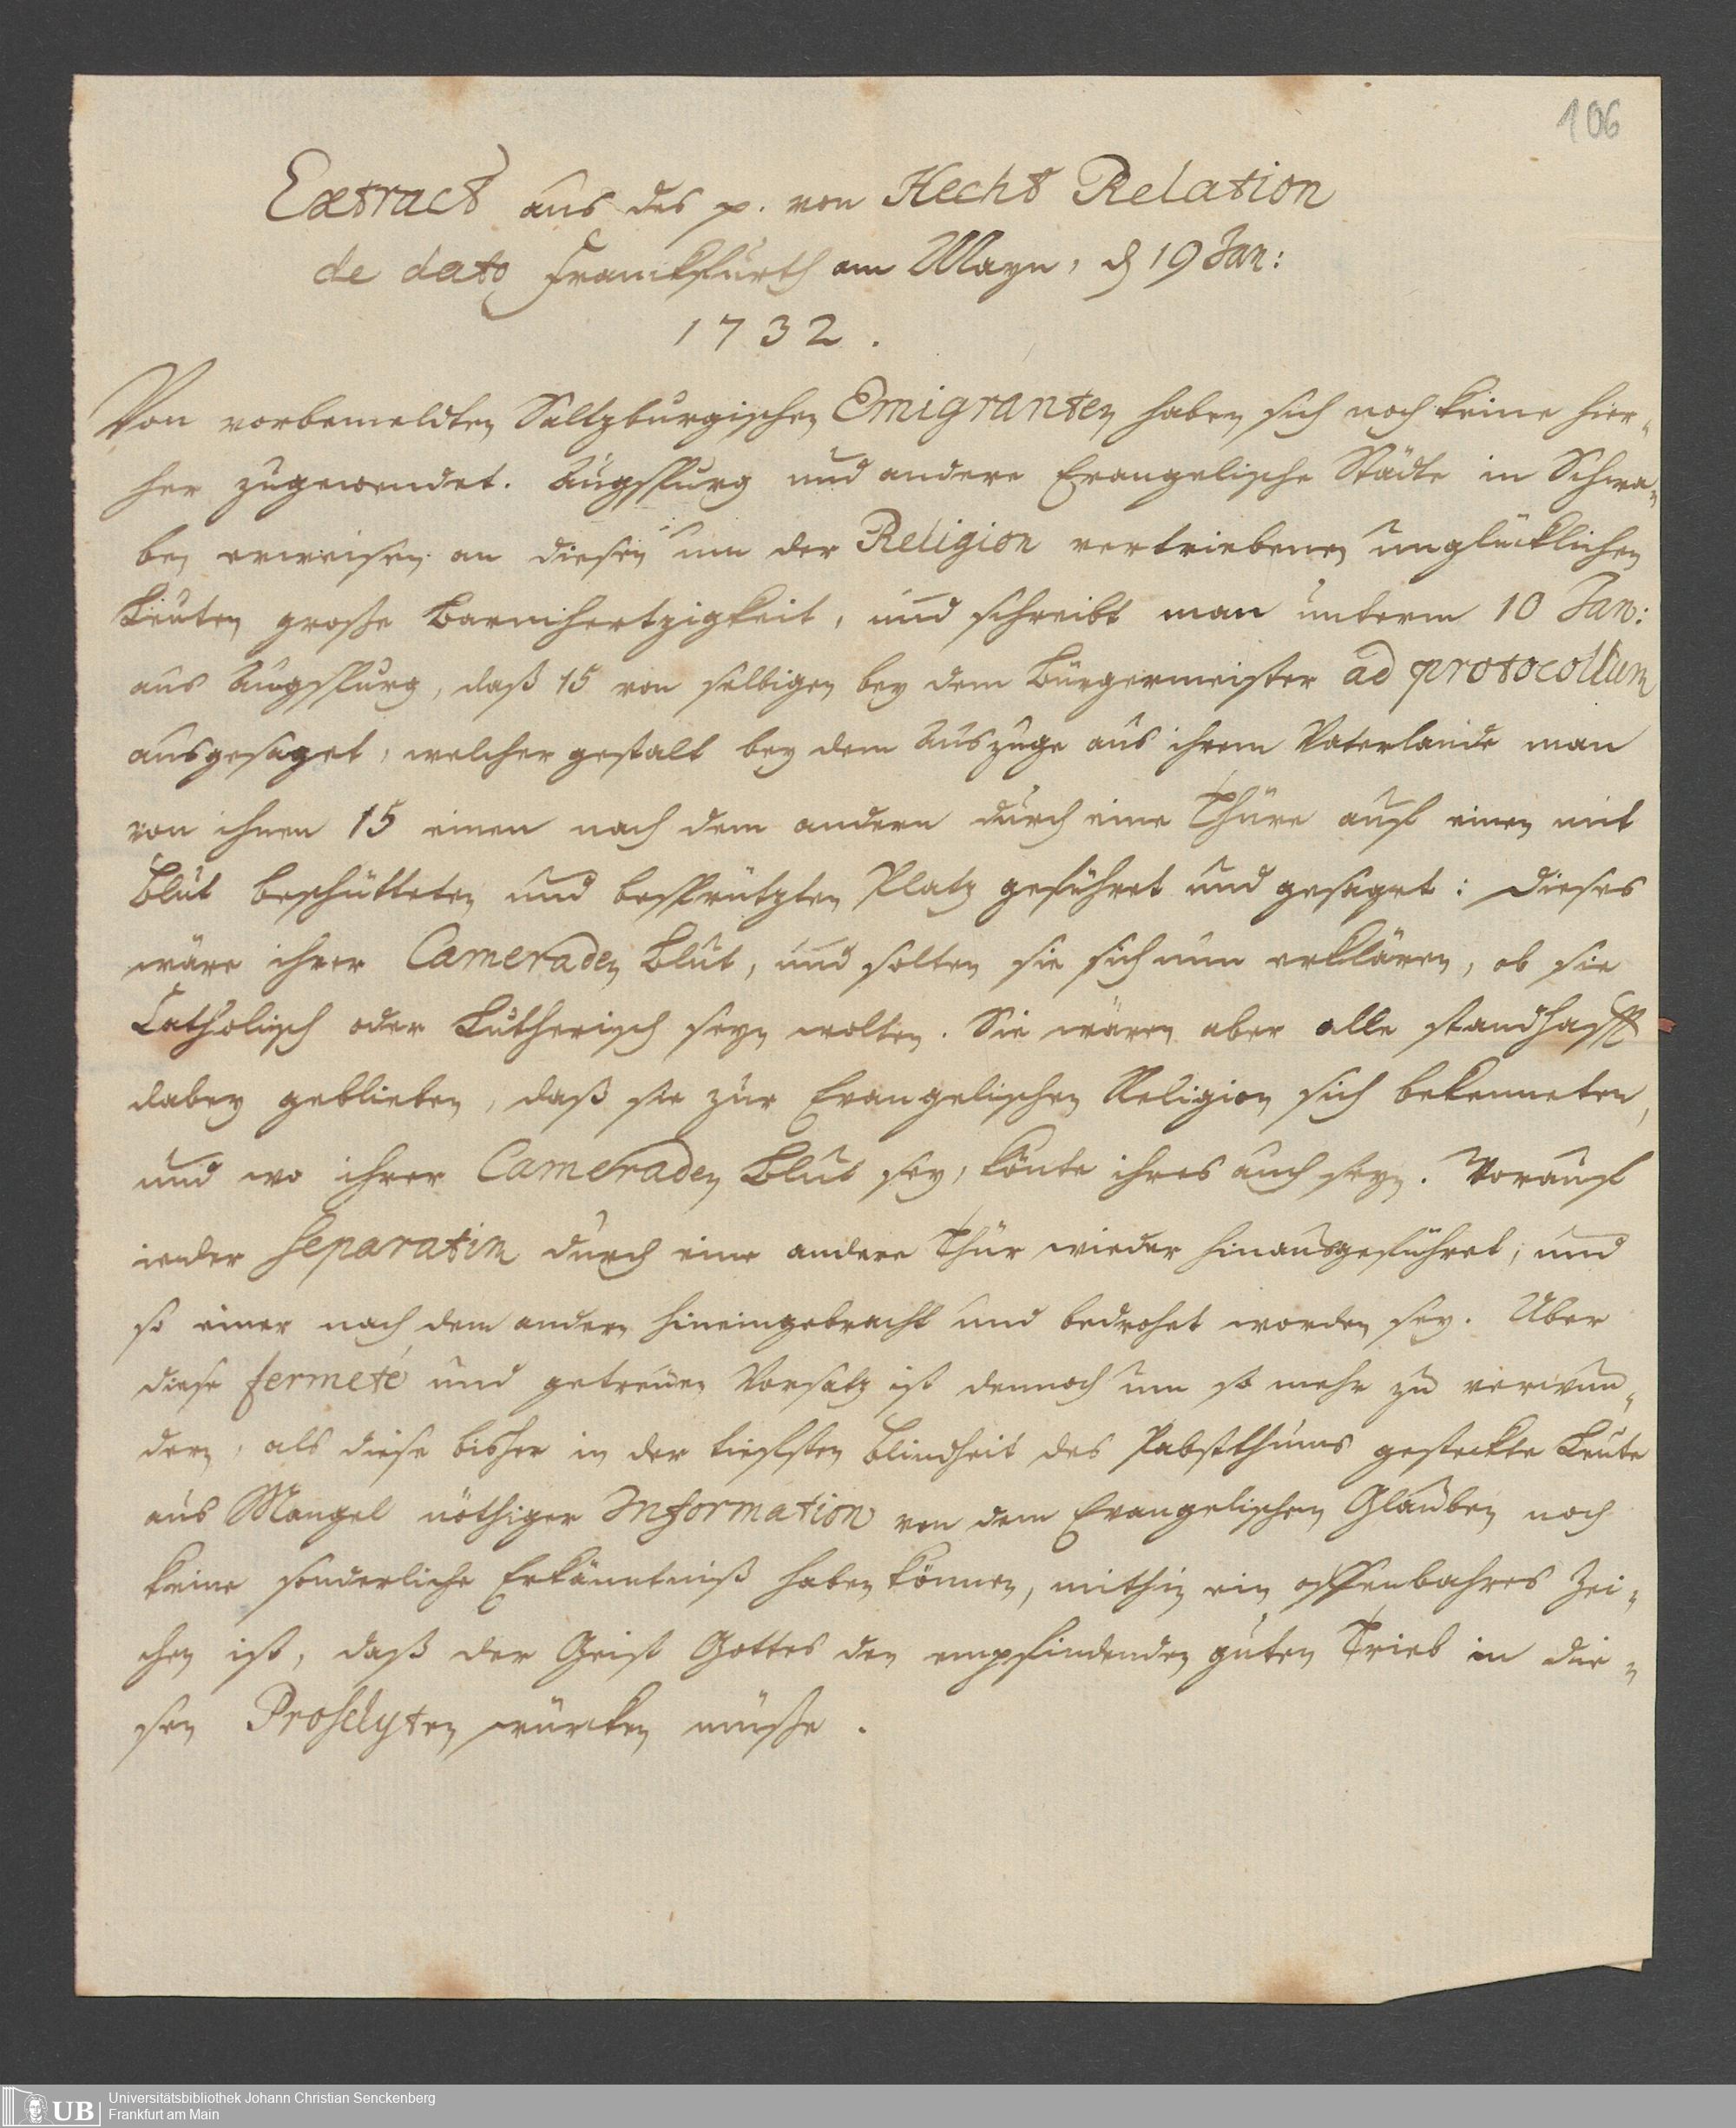 106
Extract aus des p. von Hecht Relation
de dato Franckfurth am Mayn, d 19 Jan:
1732.
Von vorbemeldten Saltzburgischen Emigranten haben sich noch keine hier-
her zugewendet. Augspurg und andere Evangelische Städte in Schwa-
ben erweisen an diesen um der Religion vertriebenen unglücklichen
Leuten große Barmhertzigkeit, und schreibt man unterm 10 Jan:
aus Augspurg, daß 15 von selbigen bey dem Bürgermeister ad protocollum
ausgesaget, welcher gestalt bey dem Auszuge aus ihrem Vaterlande man
von ihnen 15 einen nach dem andern durch eine Thüre auf einen mit
Blut beschütteten und besprützten Platz geführet und gesaget: dieses
wäre ihrer Cameraden Blut, und solten sie sich nun erklären, ob sie
Catholisch oder Lutherisch seyn wolten. Sie wären aber alle standhafft
dabey geblieben, daß sie zur Evangelischen Religion sich bekenneten,
und wo ihrer Cameraden Blut sey, könte ihres auch seyn. Worauf
ieder separatim durch eine andere Thür wieder hinausgeführet, und
so einer nach dem andern hineingebracht und bedrohet worden sey. Uber
diese fermeté und getreuen Vorsatz ist dennoch um so mehr zu verwun-
dern, als diese bisher in der tiefsten Blindheit des Pabstthums gesteckte Leute
aus Mangel nöthiger Information von dem Evangelischen Glauben noch
keine sonderliche Erkänntniß haben können, mithin ein offenbahres Zei-
chen ist, daß der Geist Gottes den empfindenden guten Trieb in die-
sen Proselyten würcken müße.
UB
Universitätsbibliothek Johann Christian Senckenberg
Frankfurt am Main